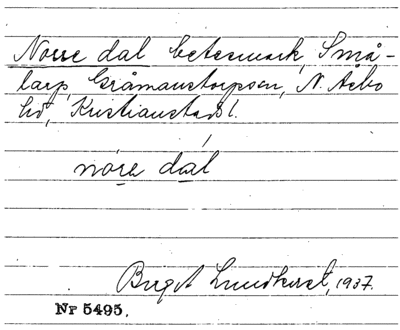 Norre dal betesmark, Små-
larp, Gråmanstorps sn, N. Åsbo
hd, Kristianstads l.
nora dal
Birgit Lundkvist, 1937.
Nr 5495.